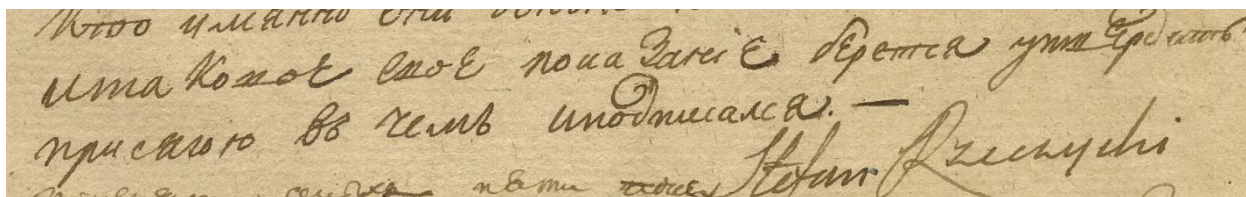 кто имянно они
итакое свое показаніе берется утвердить
присягою въ чемъ иподписался. —
Stefan Rzeczycki
пяти